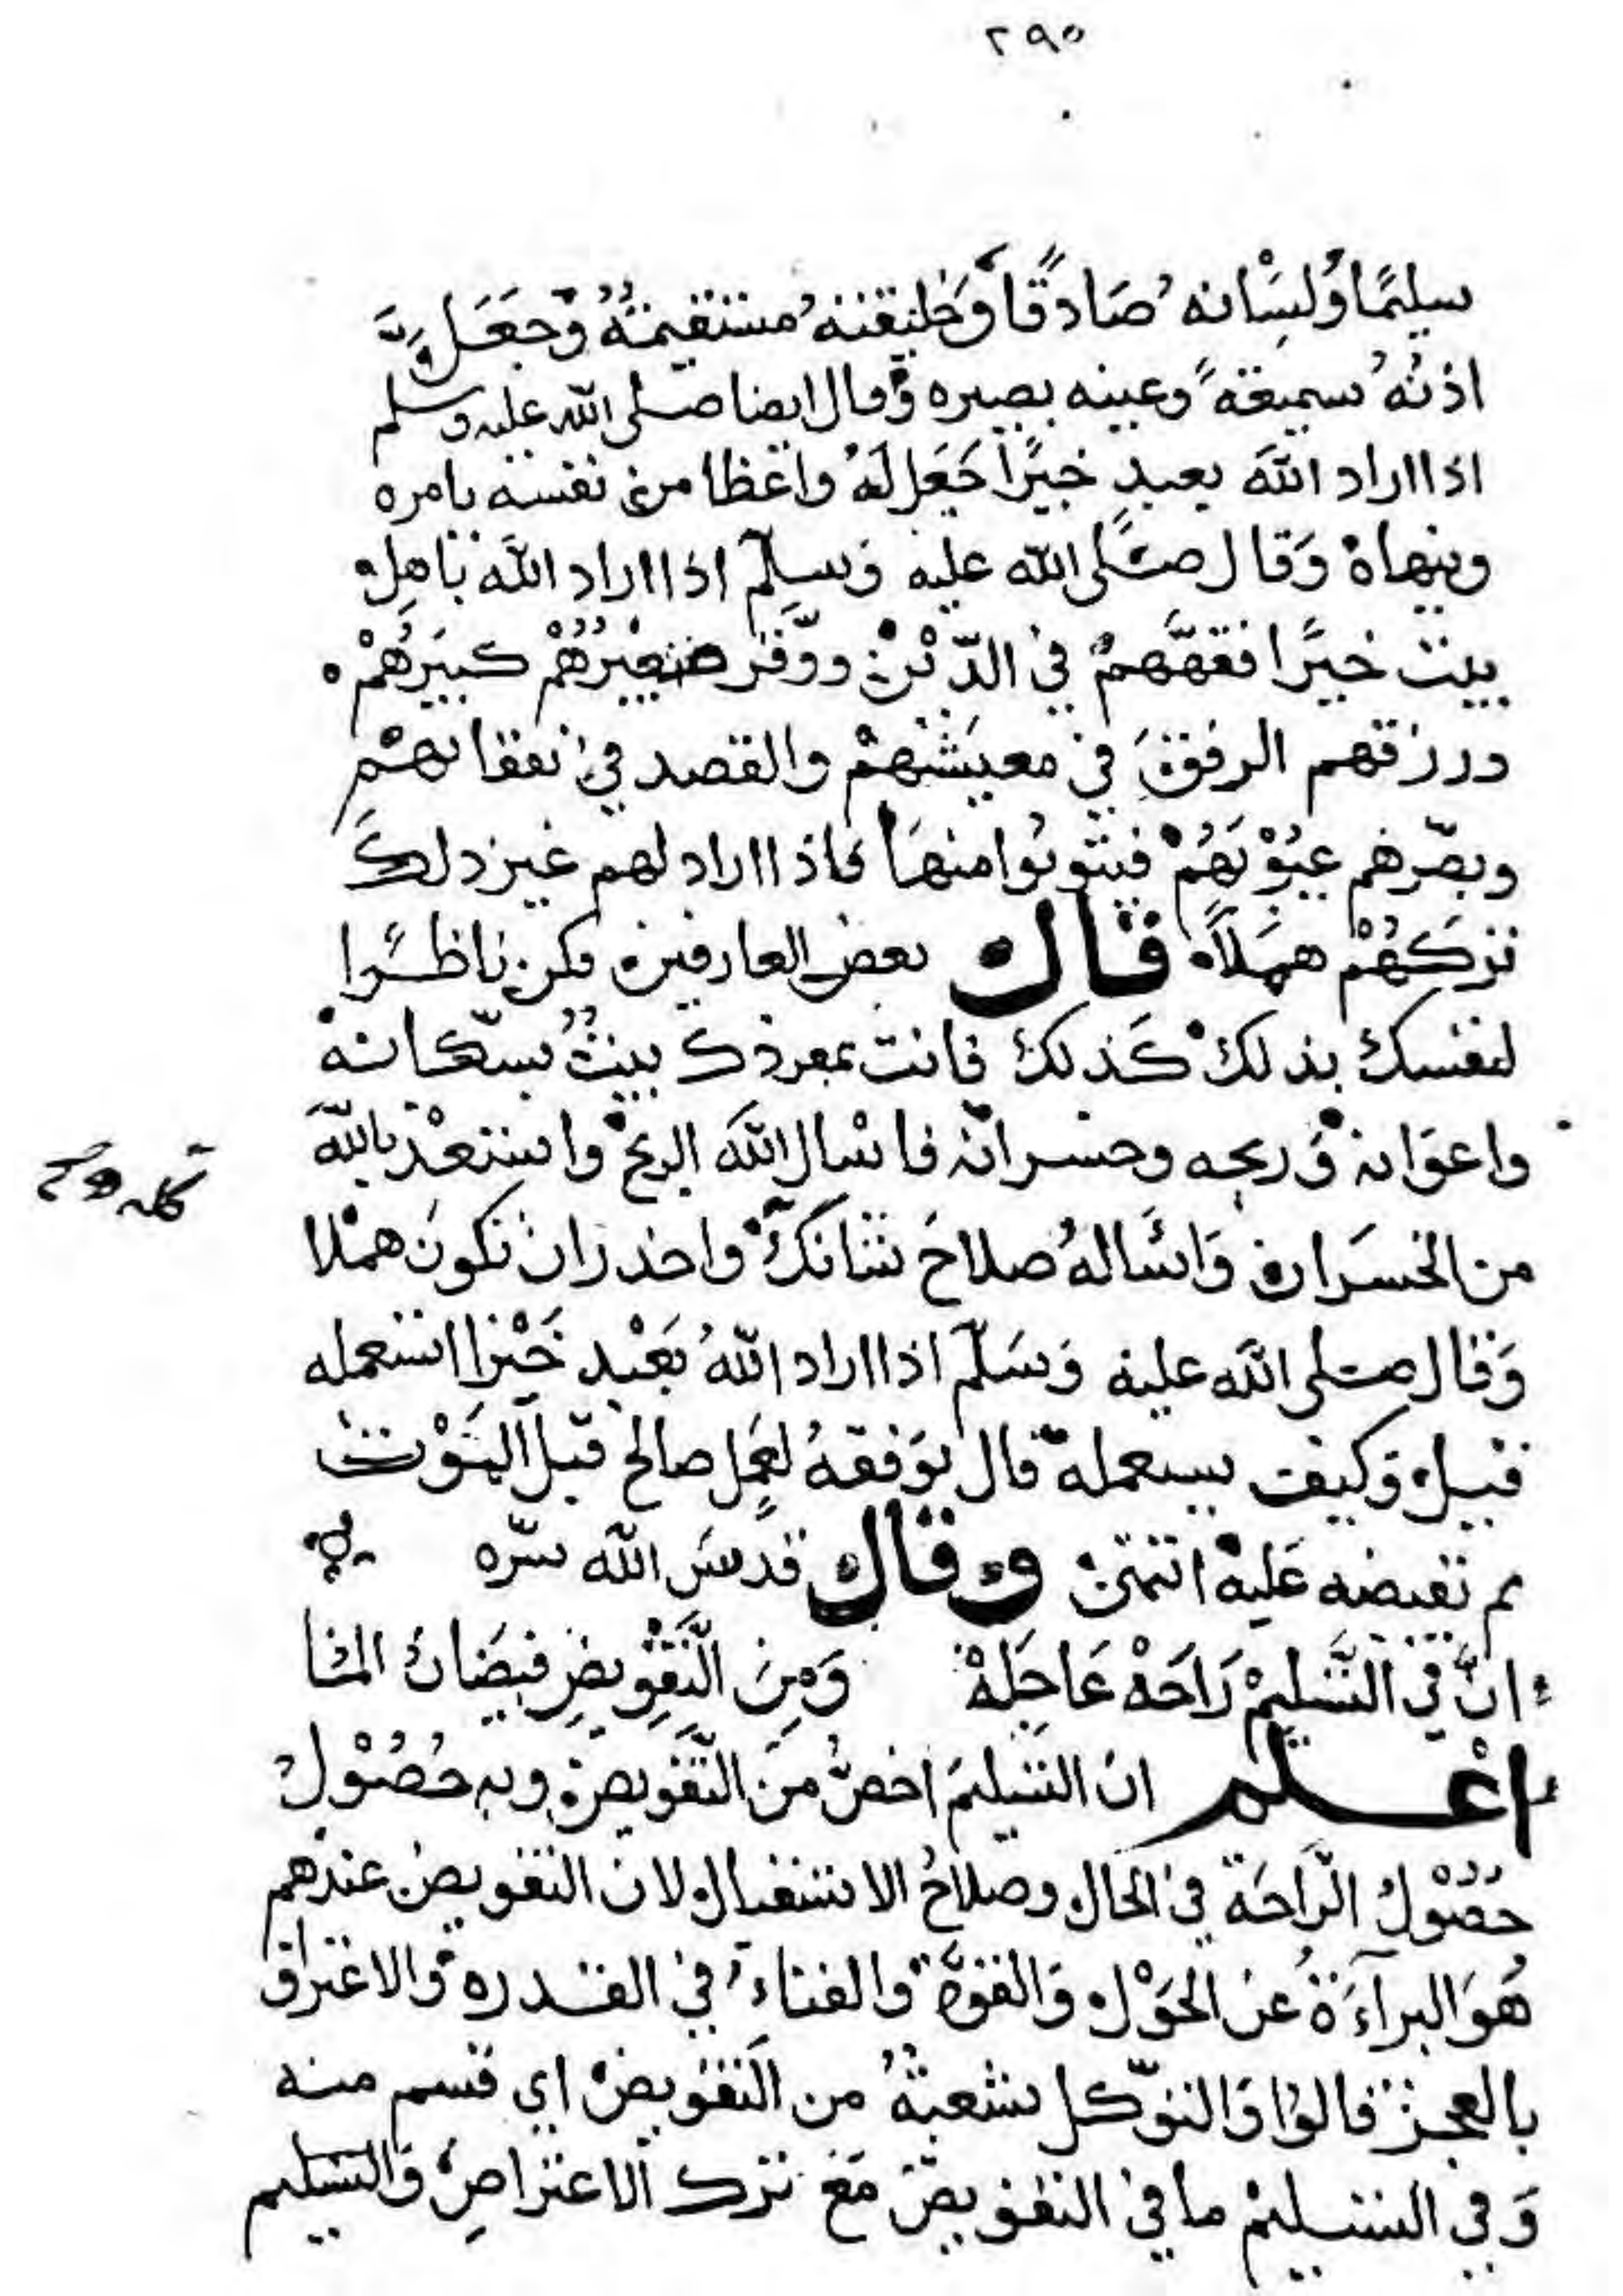 ٢٩٥
سليمًا ولسانه صادقًا وخليقته مستقيمة وجعل
اذنه سميعة وعينه بصيره وقال ايضا صلى الله عليه وسلم
اذا اراد الله بعبدٍ خيرًا جَعَل لَهُ واعظا من نفسه يامره
وينهاه وَقال صلَّى الله عليه وَسلّم اذا اراد الله باهل
بيت خيرًا فقّههم في الدّين ووقّر صغيرُهُم كبيرَهُم
ورزقهم الرفق في معيشتهم والقصد في نفقاتهم
وبصّرهم عيوبَهُم فيتوبُوا منها فاذا اراد لهم غير ذلكَ
تركَهُم همَلاً قال بعض العارفين فكن ناظرًا
لنفسك بذلك كذلك فانت بمفردك بيتٌ بسكّانه
واعوانه وَربحه وخسرانه فاسْال الله الربح واستعذ بالله
من الخسَران وَاسْاله صلاحَ شانكَ واحذر ان تكون هملا
وَقال صلى الله عليه وَسَلّم اذا اراد اللهُ بعَبْدٍ خَيْرا استعمله
قيل وَكيف يستعمله قال يوَفقهُ لعمَلٍ صالح قبل المَوْت
ثم يقبضه عَليه انتهى وَقال قدسَ الله سّره
انَّ في التَّسْليمْ رَاحَهْ عَاجِلهْ وَمِنَ التَّفْويضِ فيضَان المُنا
اعْلم ان التسْليمَ اخصُّ منَ التّفويض وبه حُصُوْلُ
حُصُوْلُ الرَّاحَة في الحال وصلاحُ الاستقبال لان التفويض عندهم
هُوَ البرآءَةُ عن الحَوْل وَالقوَّة وَالفناءُ في القدره وَالاعتراف
بالعجز قالوا وَالتوّكل شعبةُ من التفويض اي قسم منه
وَفي التسليم ما في التفويض مَع ترك الاعتراض وَالتسليم